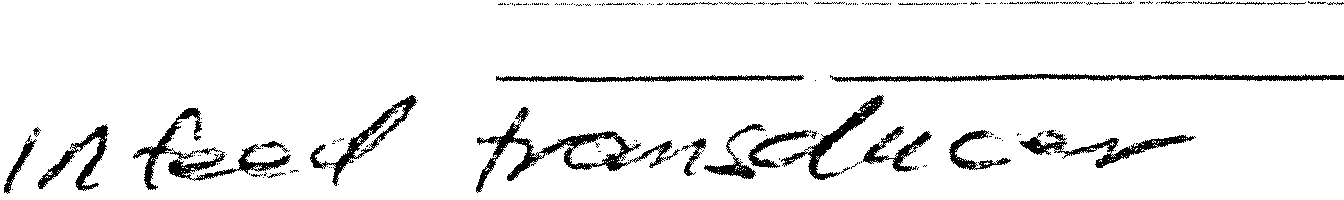 infeed transducer